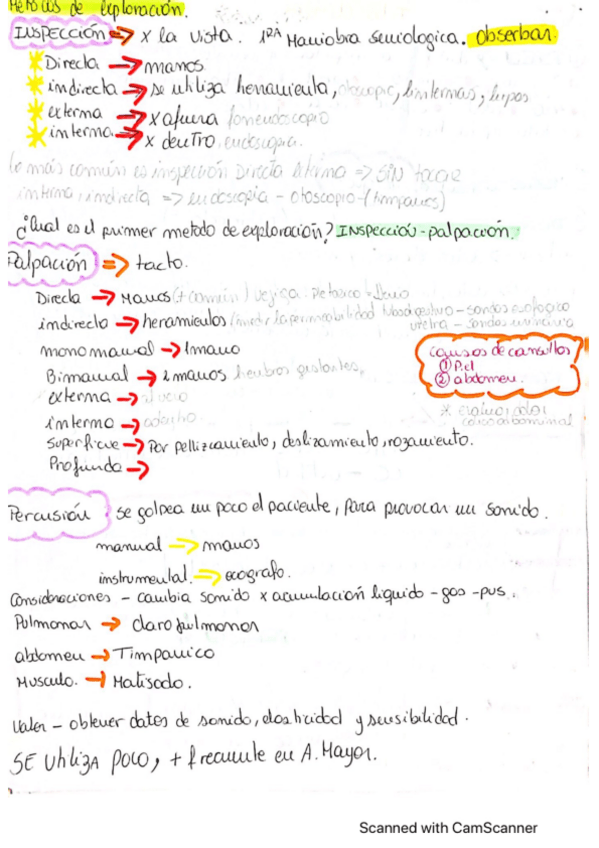 Metodos de exploración.
INSPECCIÓN => x la vista. 1RA Maniobra semiologica. obserban.
Directa → manos
indirecta → se utiliza herramienta, otoscopio, linternas, lupas
externa → x afuera fonendoscopio
interna → x dentro endoscopia.
lo más común es inspección Directa externa => SIN tocar
interna, indirecta => endoscopia - otoscopio - (timpanos)
¿Cual es el primer metodo de exploración? INSPECCIÓN - palpación.
Palpación => tacto.
Directa → Manos (+ común) vejiga
indirecta → heramientas (medir la permeabilidad tubo digestivo - sondas
uretra - sondas urinaria
monomanual → 1 mano
causas de consultas
① Piel
② abdomen.
Bimanual → 2 manos
externa →
* evaluar dolor
colico abdominal
interno → adentro
superficie → Por pellizcamiento, deslizamiento, rozamiento.
Profunda →
Percusión se golpea un poco el paciente, para provocar un sonido.
manual → manos
instrumental. → ecografo.
Consideraciones - cambia sonido x acumulación liquido - gas - pus.
Pulmonar → claro pulmonar
abdomen → Timpanico
Musculo. → Matisado.
Valer - obtener datos de sonido, elasticidad y sensibilidad.
SE UtiliZA POCO, + frecuente en A. Mayor.
Scanned with CamScanner